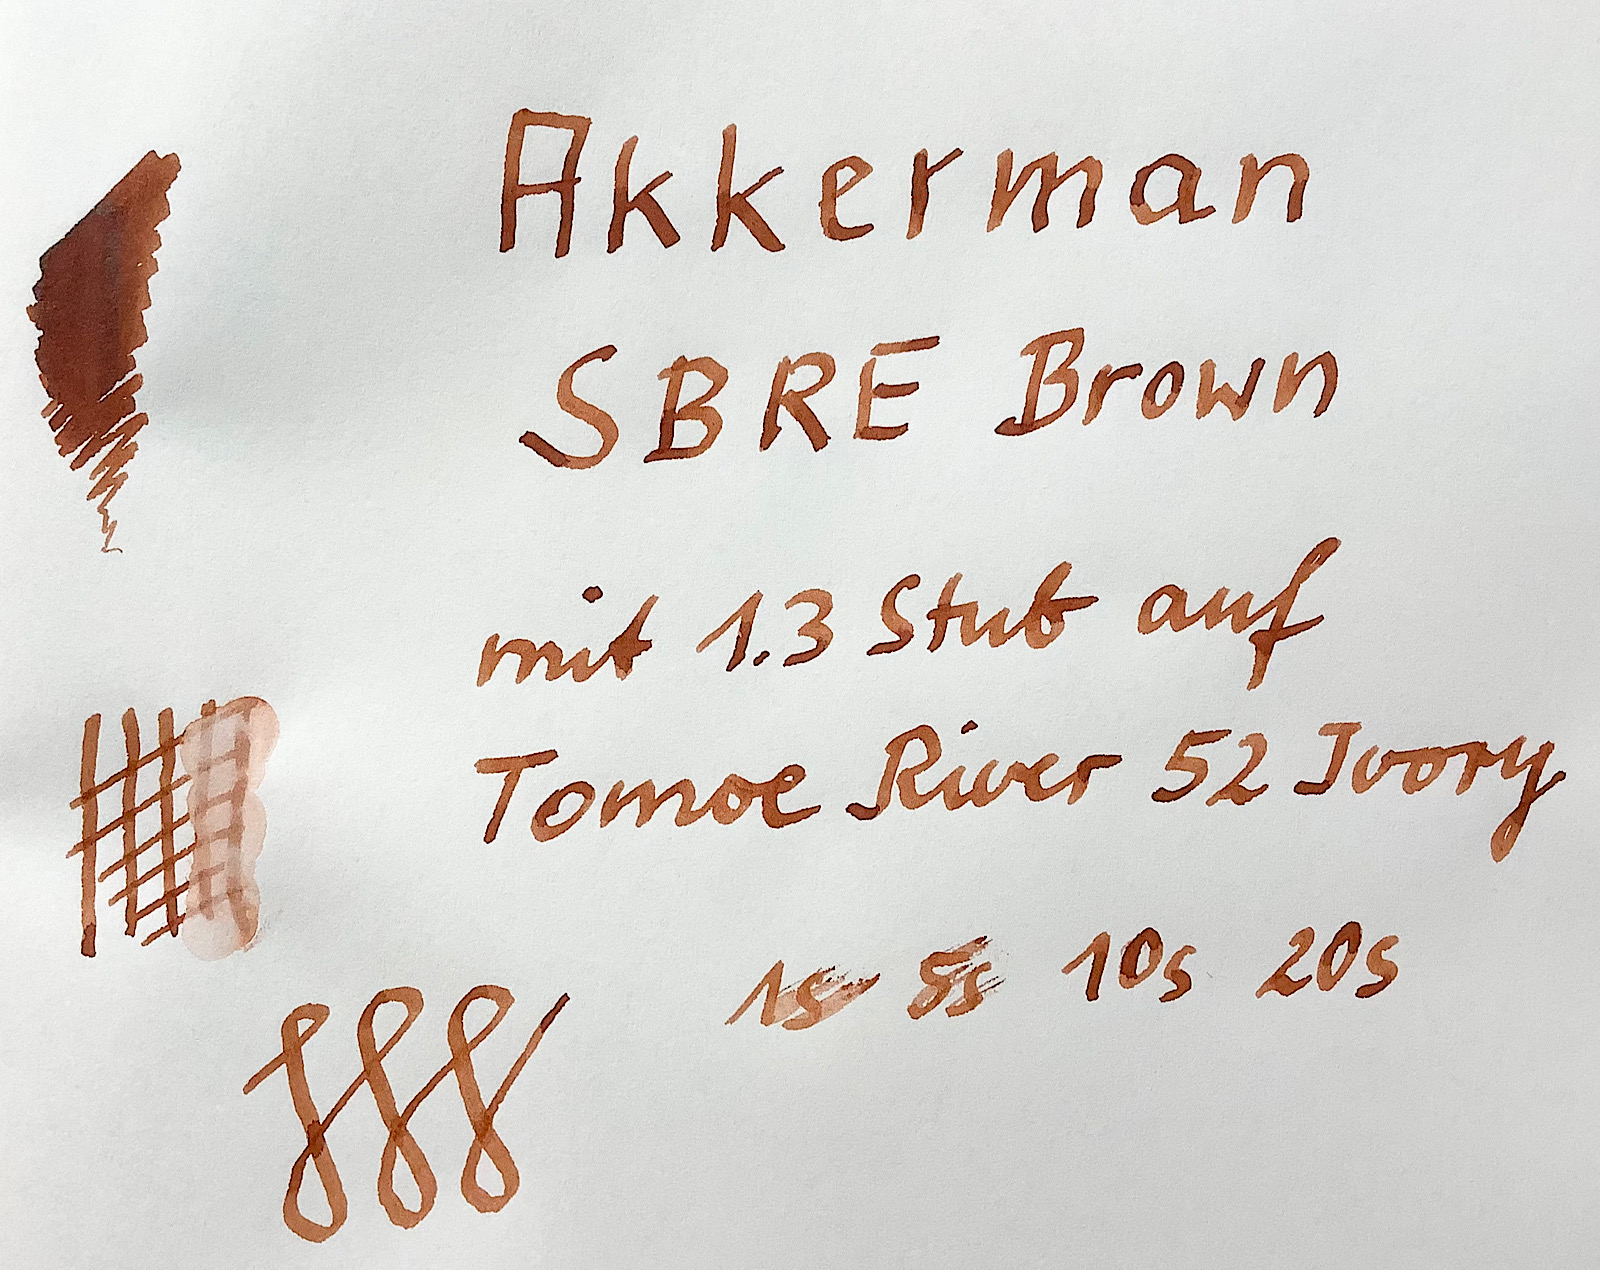 Akkerman
SBRE Brown
mit 1.3 Stub auf
Tomoe River 52 Ivory
1s 5s 10s 20s